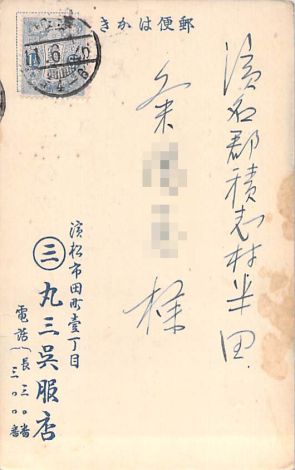 郵便はかき
濱名郡積志村半田
久米
様
濱松市田町壹丁目
㊂ 丸三呉服店
電話(長三〇番
三〇〇番